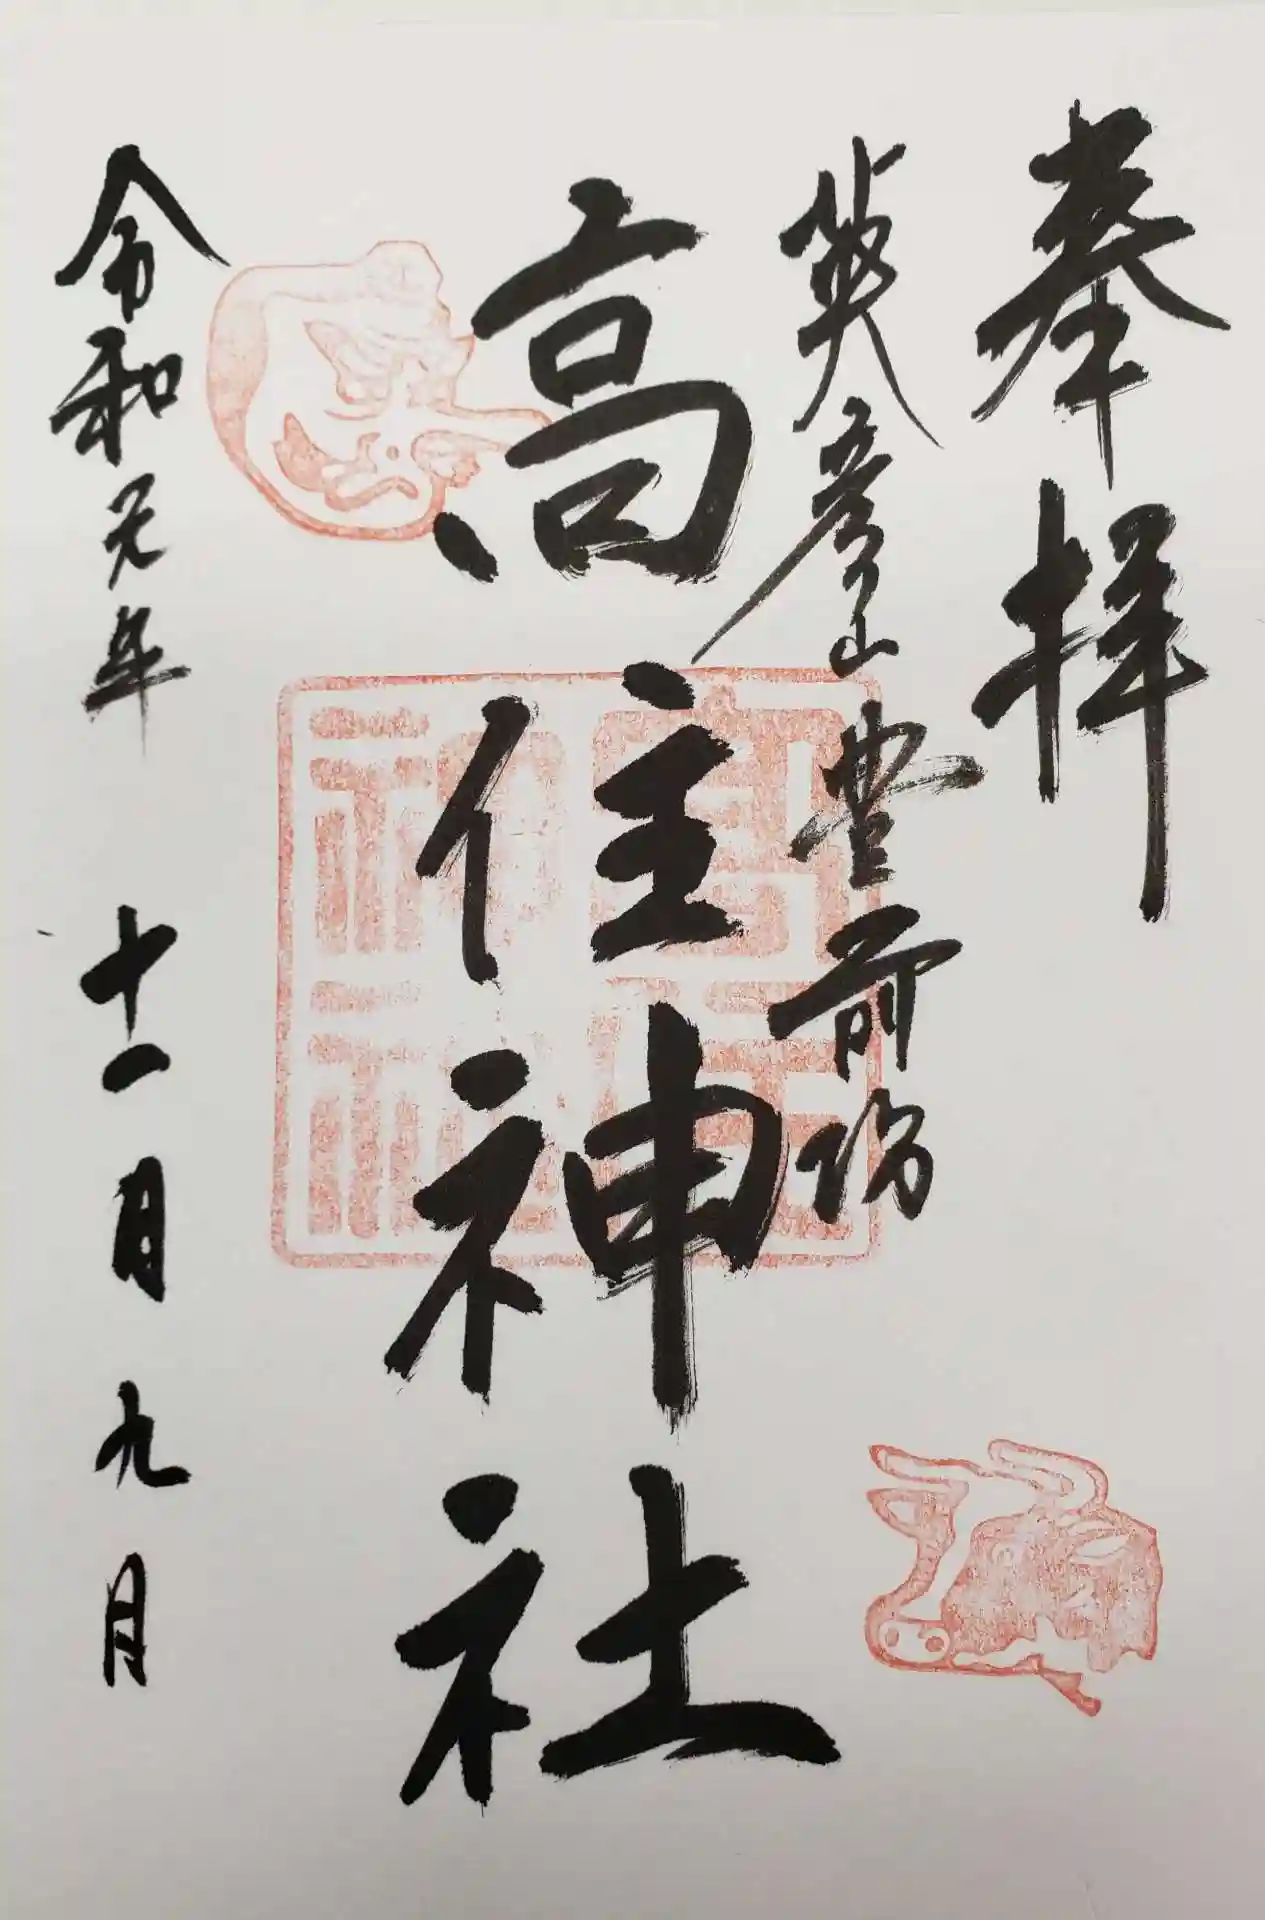 奉拝
英彦山豊前坊
高住神社
令和元年 十一月九日
高住
神社